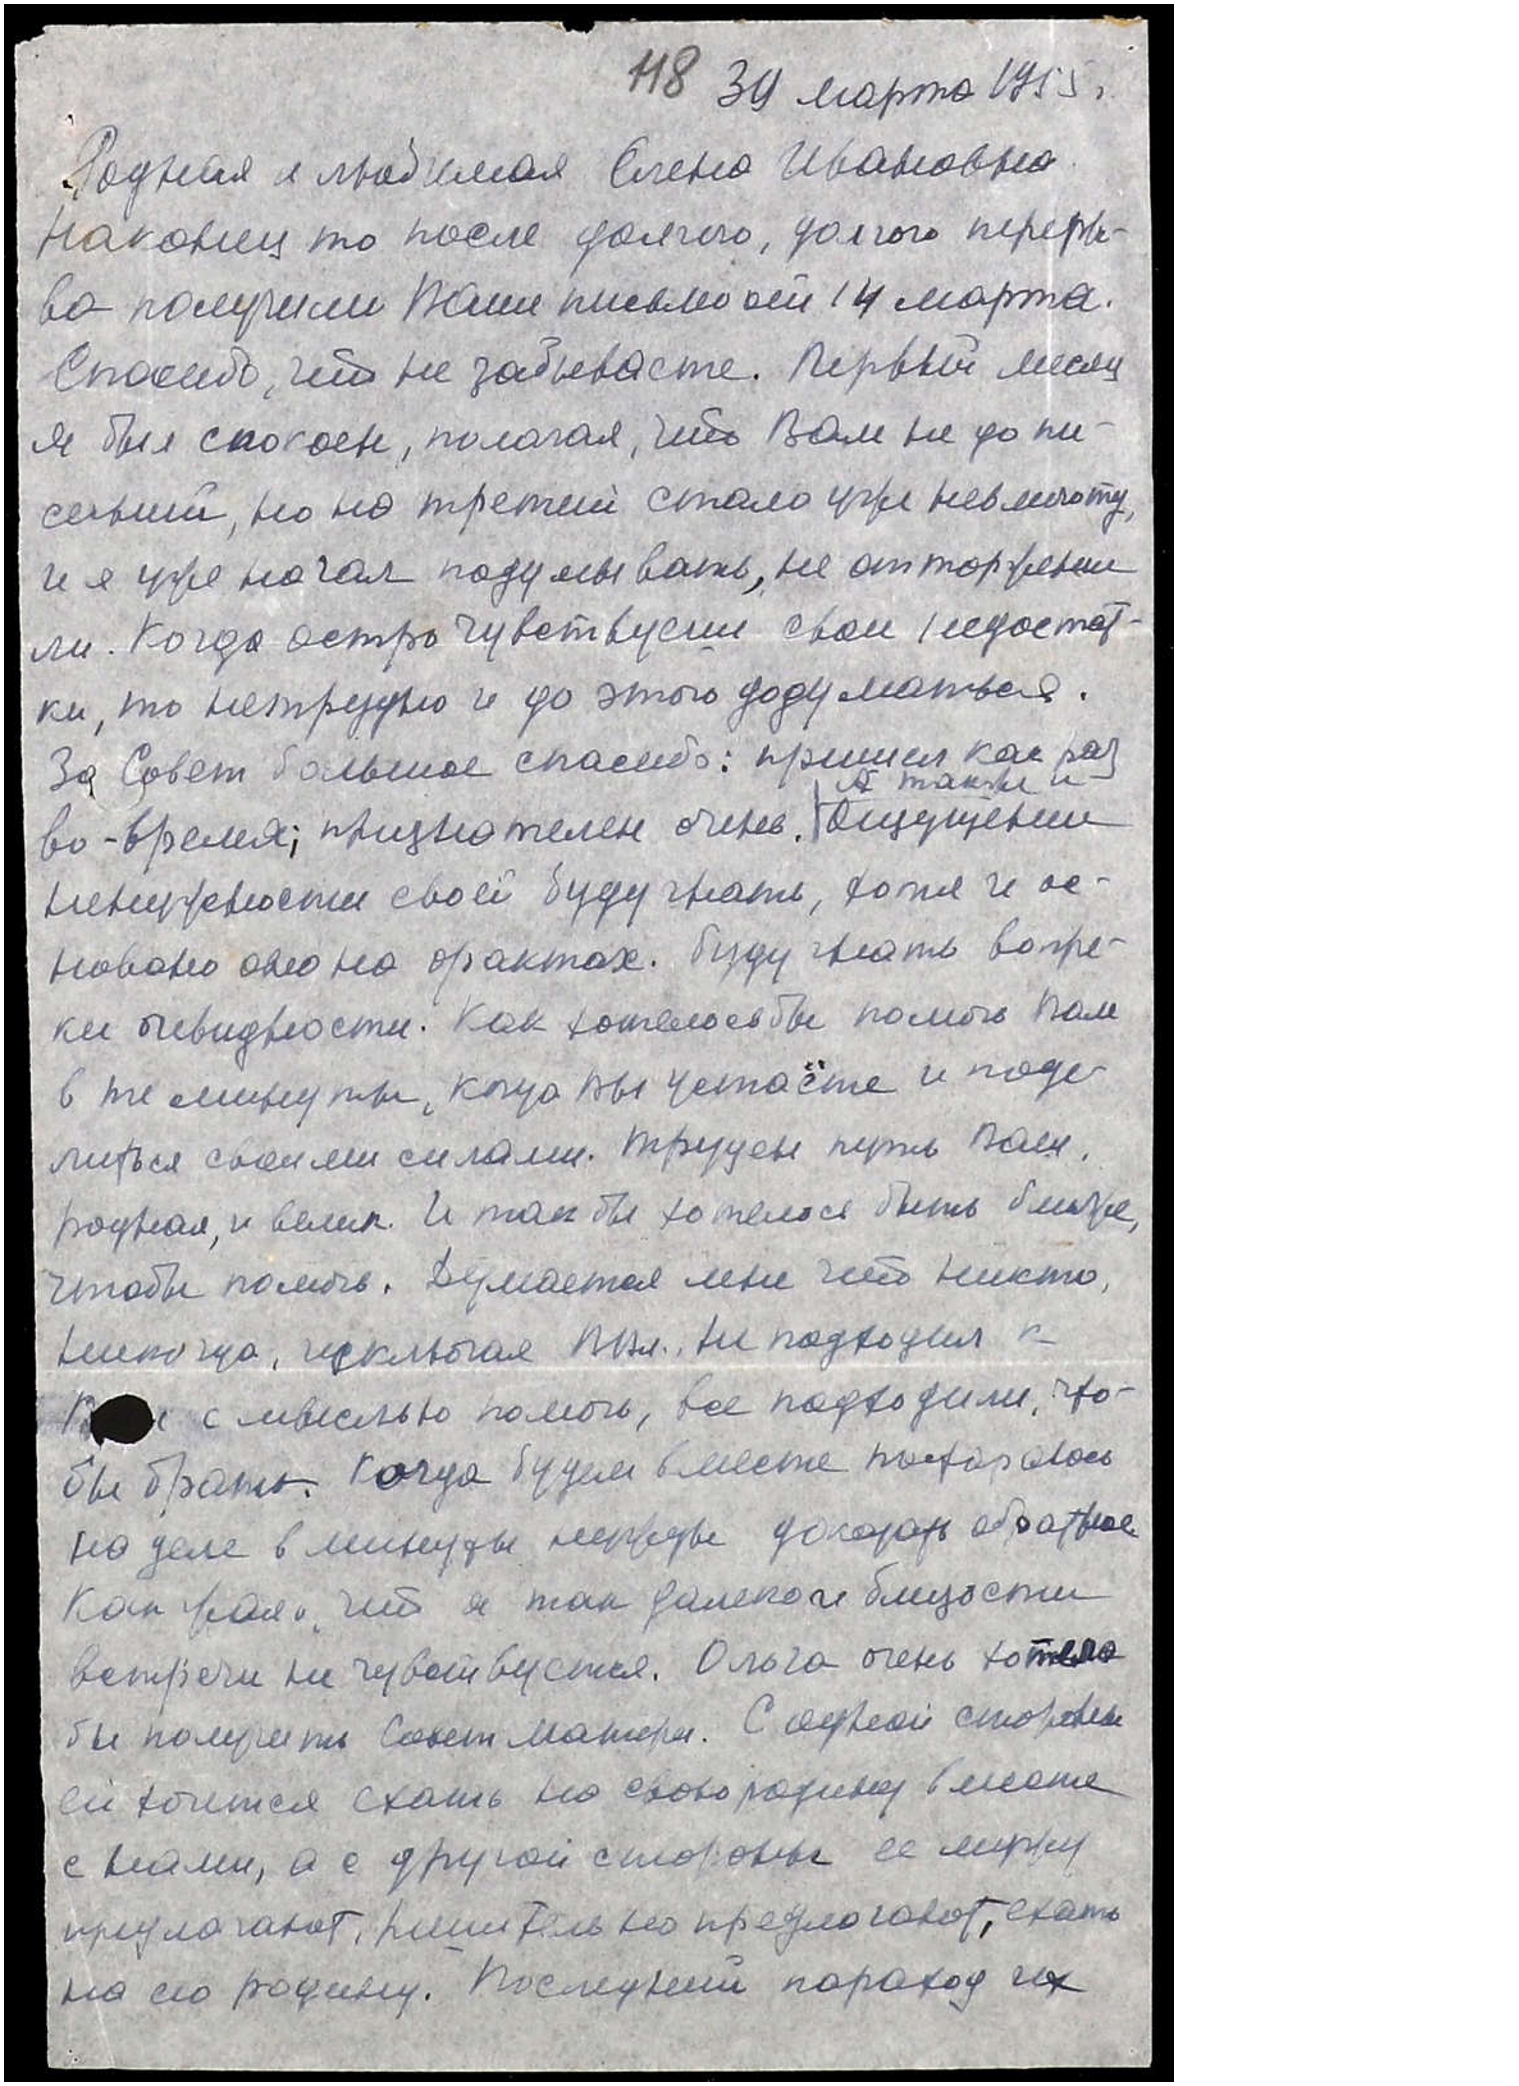 118 30 марта 1955г.
Родная и любимая Елена Ивановна.
Наконец то после долгого, долгого переры-
ва получили Ваше письмо от 14 марта.
Спасибо, что не забываете. Первый месяц
я был спокоен, полагая, что Вам не до пи-
саний, но на третий стало уже невмоготу,
и я уже начал подумывать, не отторжении
ли. Когда остро чувствуешь свои недостат-
ки, то нетрудно и до этого додуматься.
За Совет большое спасибо: пришел как раз
во-время; признателен очень. А также и
Ощущении
ненужности своей буду гнать, хотя и ос-
новано оно на фактах. Буду гнать вопре-
ки очевидности. Как хотелось бы помочь Вам
в те минуты, когда Вы устаёте и поде-
литься своими силами. Труден путь Ваш,
родная, и велик. И так бы хотелось быть ближе,
чтобы помочь. Думается мне что никто,
никогда, исключая Вл., не подходил к
с мыслью помочь, все подходили, что-
бы брать. Когда будем вместе постараюсь
на деле в минуты нужды доказать обратное.
Как жаль, что я так далеко и близости
встречи не чувствуется. Ольга очень хотела
бы получить Совет Матери. С одной стороны
ей хочется ехать на свою родину вместе
с нами, а с другой стороны ее мужу
предлагают, решительно предлагают, ехать
на его родину. Последний пароход их